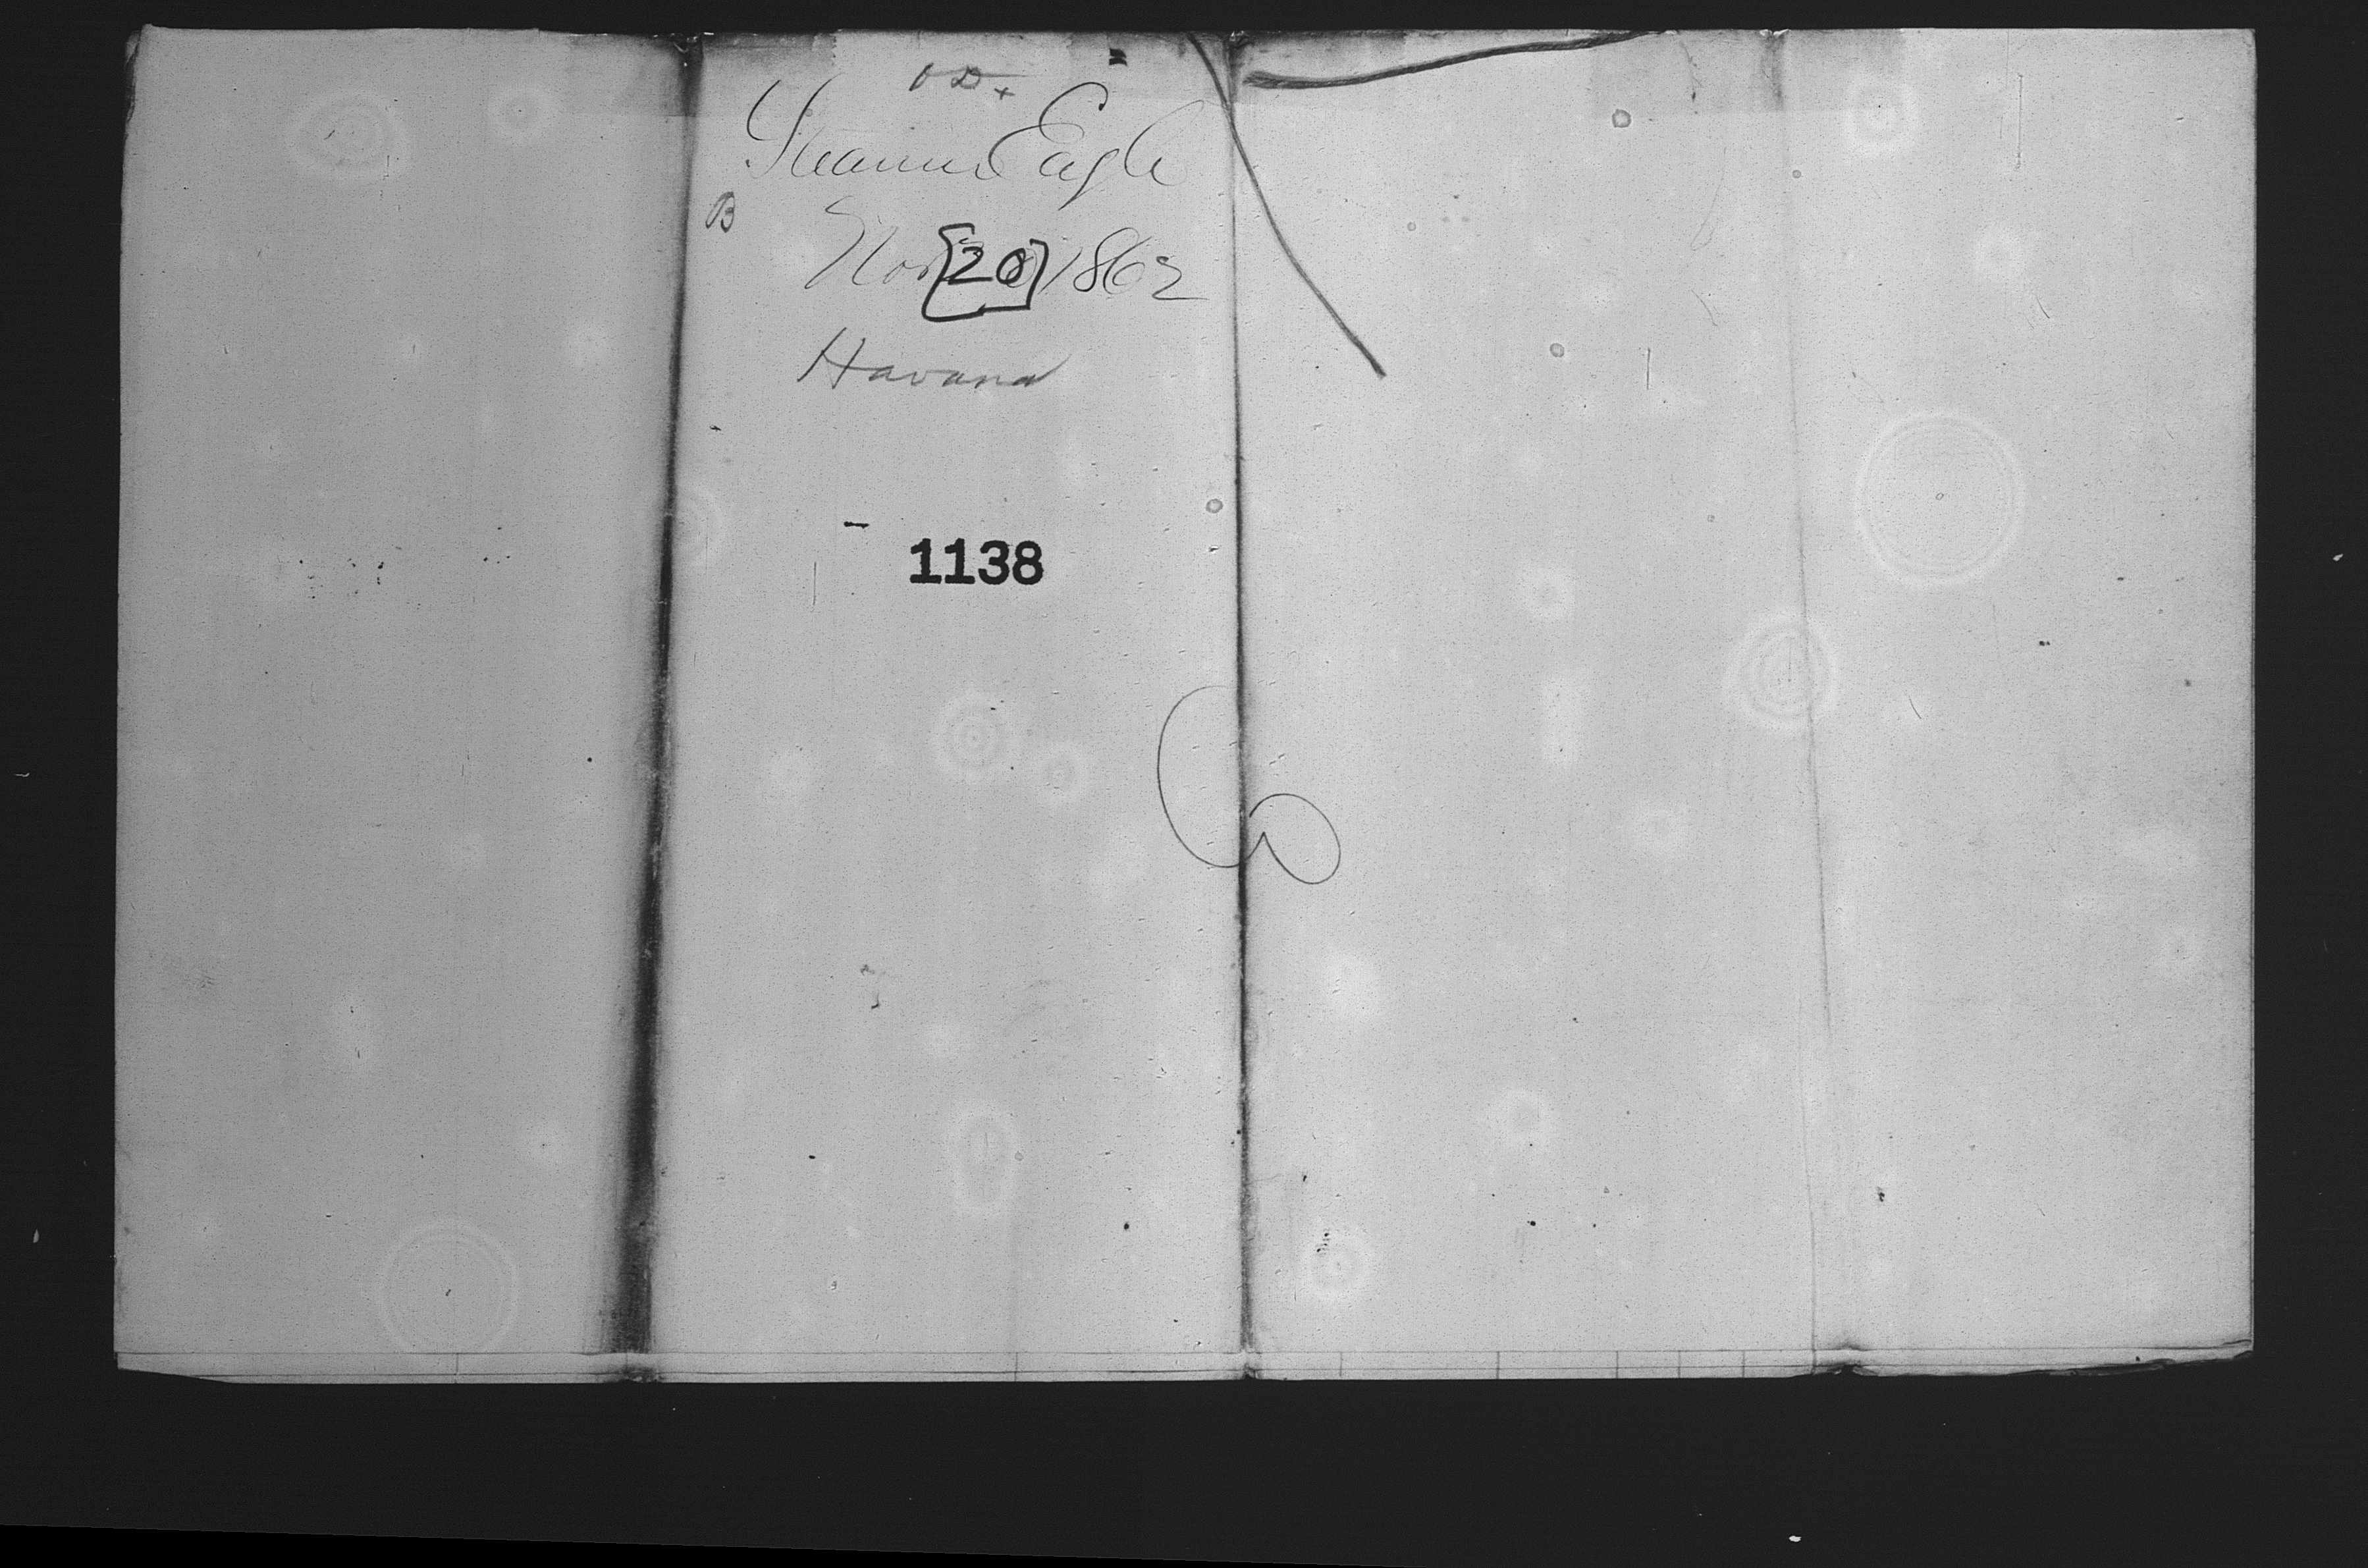 Steamer Eagle
B
Nov [20] 1862
Havana
1138